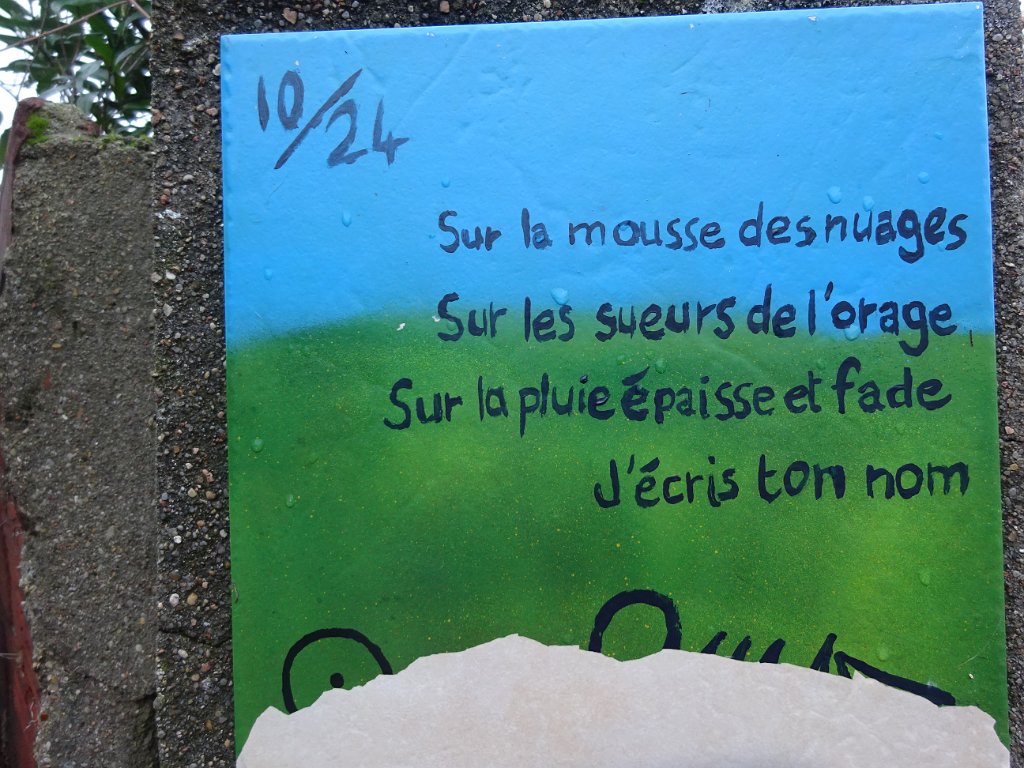 10/24
Sur la mousse des nuages
Sur les sueurs de l'orage
Sur la pluie épaisse et fade
J'écris ton nom